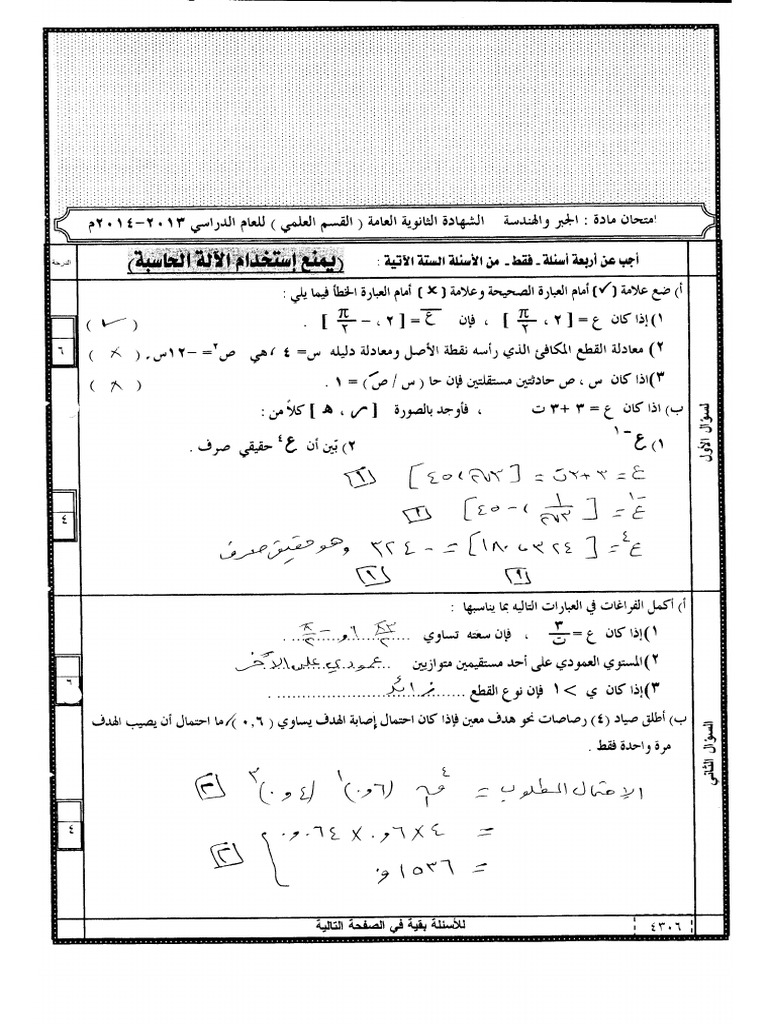 امتحان مادة : الجبر والهندسة الشهادة الثانوية العامة ( القسم العلمي ) للعام الدراسي ٢٠١٣-٢٠١٤م
أجب عن أربعة أسئلة - فقط - من الأسئلة الستة الآتية : (يمنع إستخدام الآلة الحاسبة)
الدرجة
السؤال الأول
أ) ضع علامة (✓) أمام العبارة الصحيحة وعلامة (×) أمام العبارة الخطأ فيما يلي :
١) إذا كان ع = [ ٢ ، π/٢ ] ، فإن ع̅ = [ ٢ ، - π/٢ ] . ( ✓ )
٦
٢) معادلة القطع المكافئ الذي رأسه نقطة الأصل ومعادلة دليله س= ٤ ، هي ص٢= -١٢س. ( × )
٣) اذا كان س ، ص حادثتين مستقلتين فإن حا ( س / ص) = ١ . ( × )
ب) اذا كان ع = ٣ + ٣ ت ، فأوجد بالصورة [ ر ، هـ ] كلاً من :
١) ع-١ ٢) بّين أن ع٤ حقيقي صرف .
ع = ٣ + ٣ت = [ ٣√٢ ، ٤٥ ] [١]
ع-١ = [ ١/٣√٢ ، -٤٥ ] [٢]
٤
ع٤ = [ ٣٢٤ ، ١٨٠ ] = - ٣٢٤ وهو حقيقي صرف
السؤال الثاني
أ) أكمل الفراغات في العبارات التاليه بما يناسبها :
١) إذا كان ع = ٣/ت ، فإن سعته تساوي ٣π/٢ أو -π/٢
٢) المستوي العمودي على أحد مستقيمين متوازيين عمودي على الآخر
٦
٣) إذا كان ي > ١ فإن نوع القطع زائد
ب) أطلق صياد (٤) رصاصات نحو هدف معين فإذا كان احتمال إصابة الهدف يساوي ( ٠,٦ )، ما احتمال أن يصيب الهدف
مرة واحدة فقط .
الاحتمال المطلوب = ٤ق١ (٠,٦)١ (٠,٤)٣ [٢]
= ٤ × ٠,٦ × ٠,٠٦٤
٤
= ٠,١٥٣٦ [٢]
للأسئلة بقية في الصفحة التالية
٤٣٠٦